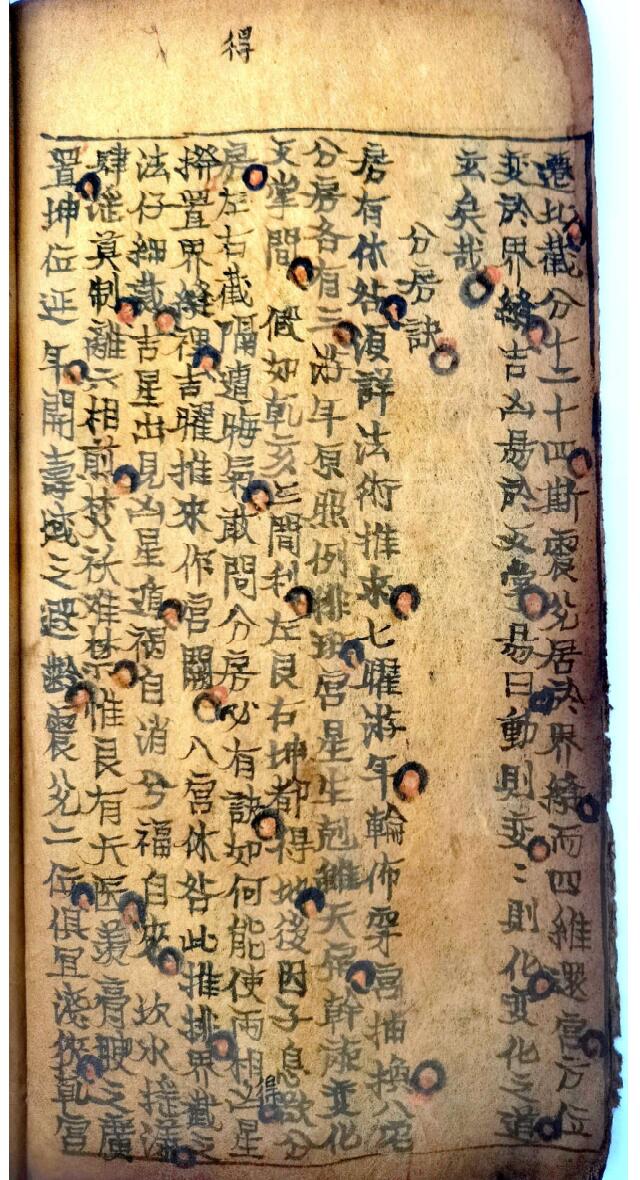 得
遷比截分十二十四斯震兌居於界縫而四維還宮方位
变於界縫吉凶易於文掌易曰動則变〻則化变化之道
玄矣哉
分房訣
房有休咎須詳法術推來七曜游年輪佈穿宮抽換八宅
分房各有二游年原照例排班宮星生剋雖天宿幹旋变化
文掌間 假如乾亥之間利左艮右坤都得地後因子息欲分
房左右截隔遭晦氣敢問分房必有訣如何能使兩相得星
撥置界縫裡吉曜推來作宮關 八宮休咎此推排界截之
法仔細裁吉星出見凶星遁禍自消兮福自來 坎水揺漾
肆淫莫制離火相煎焚祅难禁惟艮有天医羨膏腴之廣
置坤位延年開壽域之遐齡震兌二位俱宜淺狹乾宮